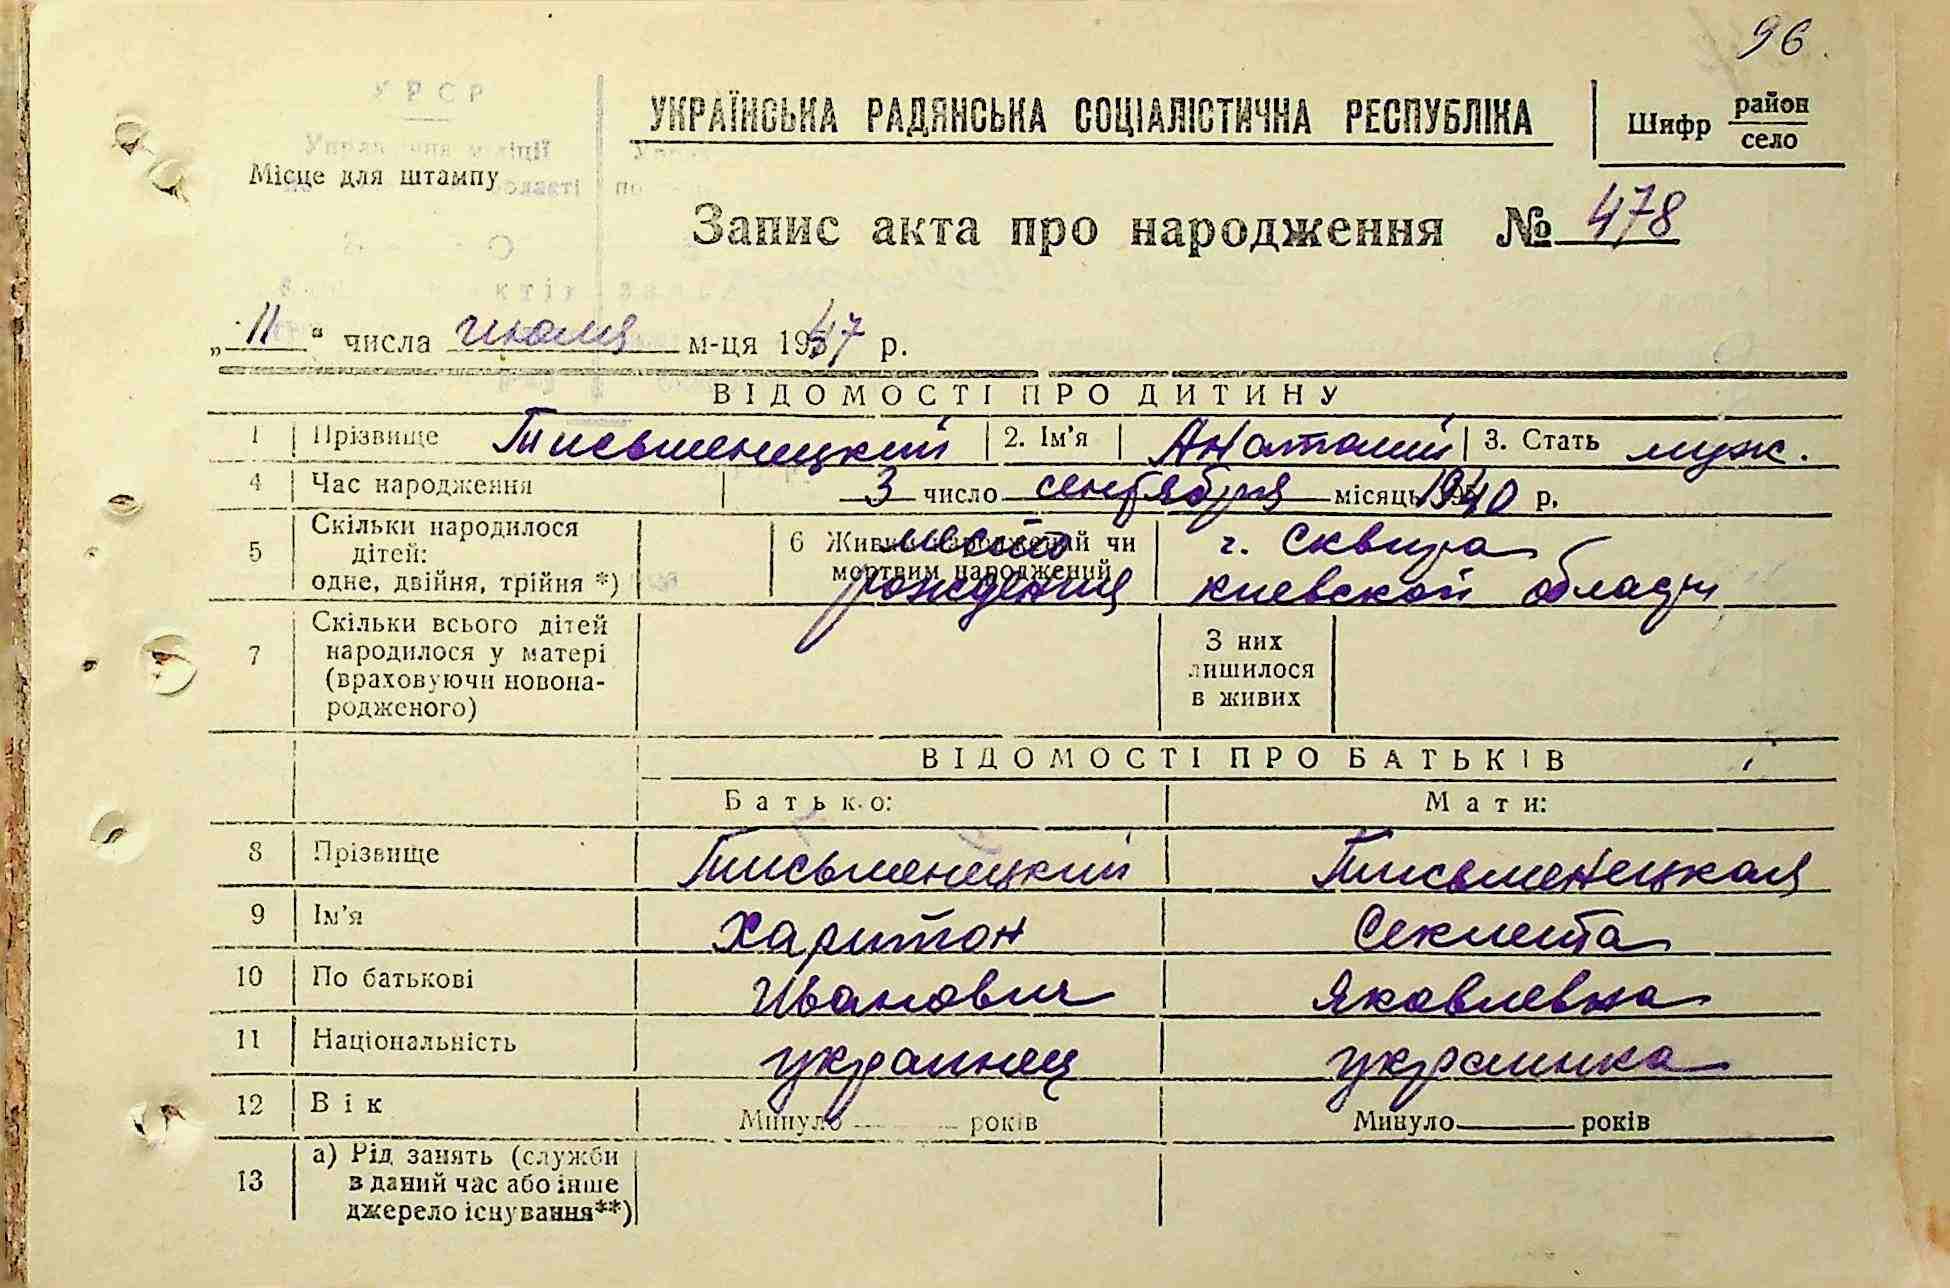 96.
УКРАЇНСЬКА РАДЯНСЬКА СОЦІАЛІСТИЧНА РЕСПУБЛІКА
Шифр район
село
УРСР
Місце для штампу
Запис акта про народження № 478
„11“ числа июля м-ця 1947 р.
ВІДОМОСТІ ПРО ДИТИНУ
1 Прізвище Письменецкий 2. Ім'я Анатолий 3. Стать муж.
4 Час народження 3 число сентября місяць 1940 р.
5 Скільки народилося дітей: одне, двійня, трійня *)
6 Живим народжений чи мертвим народжений
место рождения
г. Сквира
киевской области
7 Скільки всього дітей народилося у матері (враховуючи новонародженого)
З них лишилося в живих
ВІДОМОСТІ ПРО БАТЬКІВ
Батько: Мати:
8 Прізвище Письменецкий Письменецкая
9 Ім'я Харитон Секлета
10 По батькові Иванович Яковлевна
11 Національність украинец украинка
12 Вік Минуло років Минуло років
13 а) Рід занять (служби в даний час або інше джерело існування**)